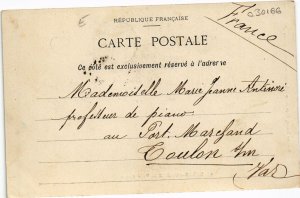 E
630166
RÉPUBLIQUE FRANÇAISE
France
CARTE POSTALE
Ce côté est exclusivement réservé à l'adresse
Mademoiselle Marie Jeanne Antinori
professeur de piano
au Port. Marchand
Toulon s/m
Var